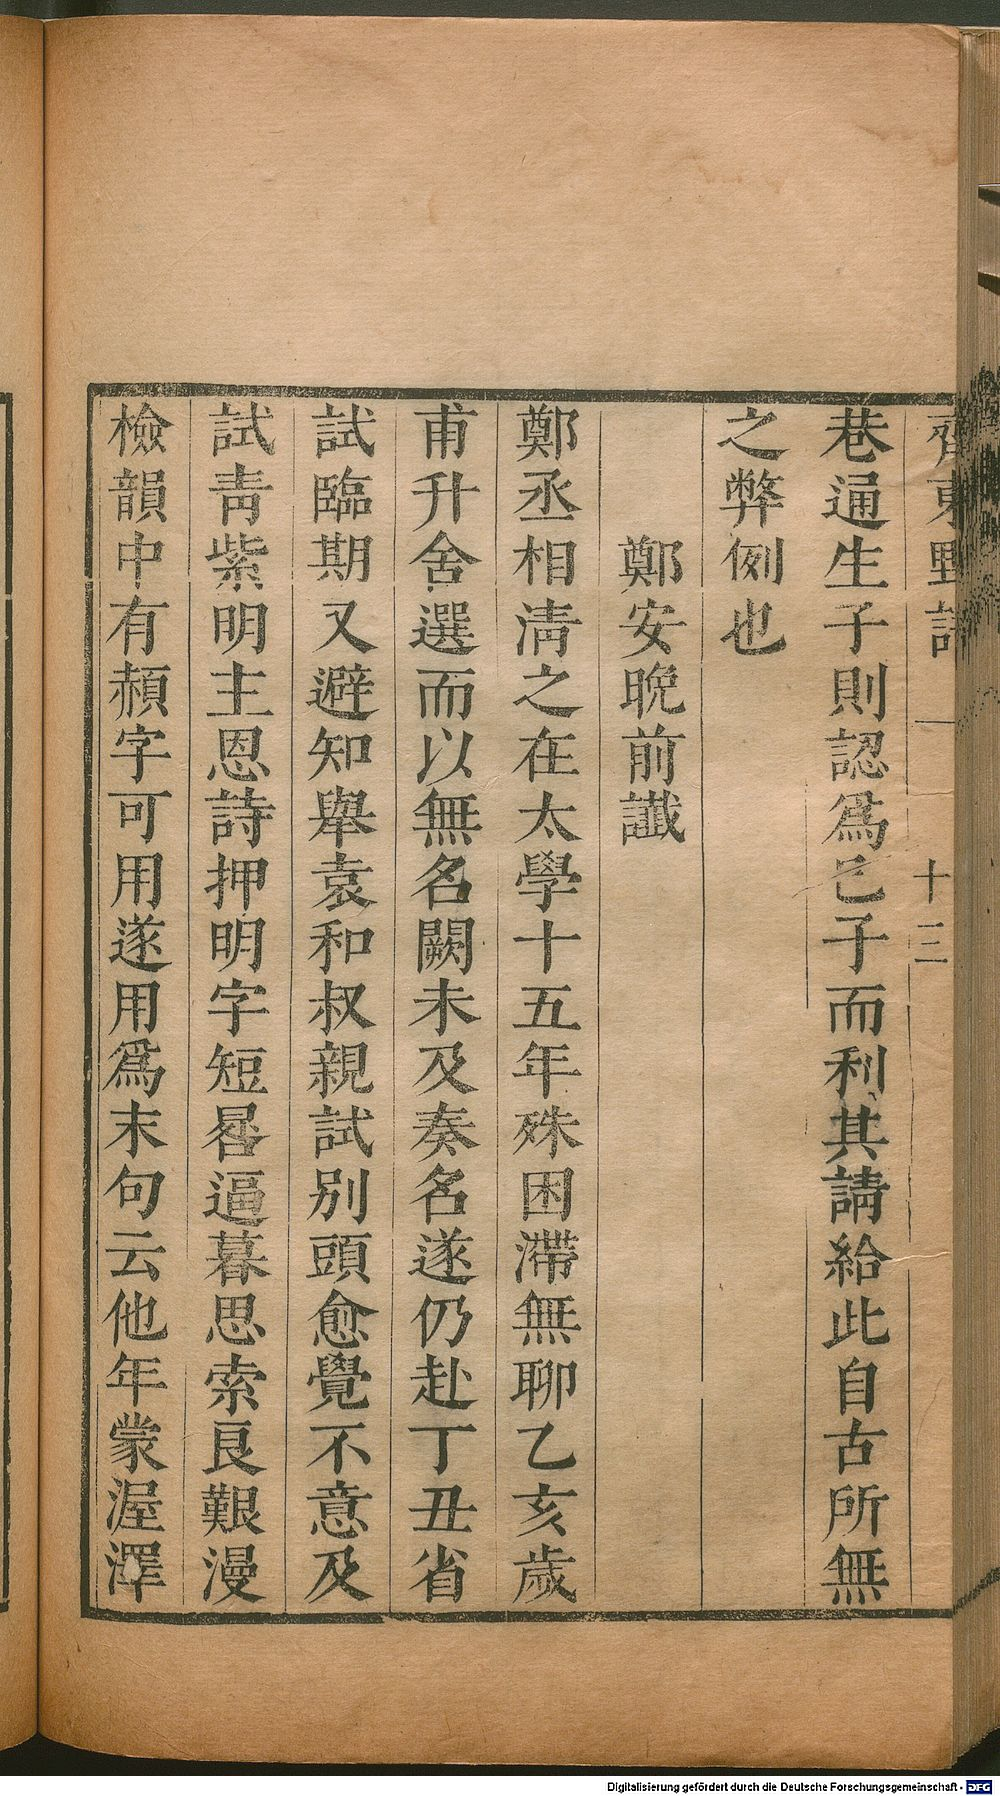 齊東野語 十三
巷通生子則認爲己子而利其請給此自古所無
之弊例也
鄭安晚前讖
鄭丞相淸之在太學十五年殊困滯無聊乙亥歲
甫升舍選而以無名闕未及奏名遂仍赴丁丑省
試臨期又避知舉袁和叔親試別頭愈覺不意及
試靑紫明主恩詩押明字短晷逼暮思索良艱漫
檢韻中有赬字可用遂用爲末句云他年蒙渥澤
Digitalisierung gefördert durch die Deutsche Forschungsgemeinschaft - DFG